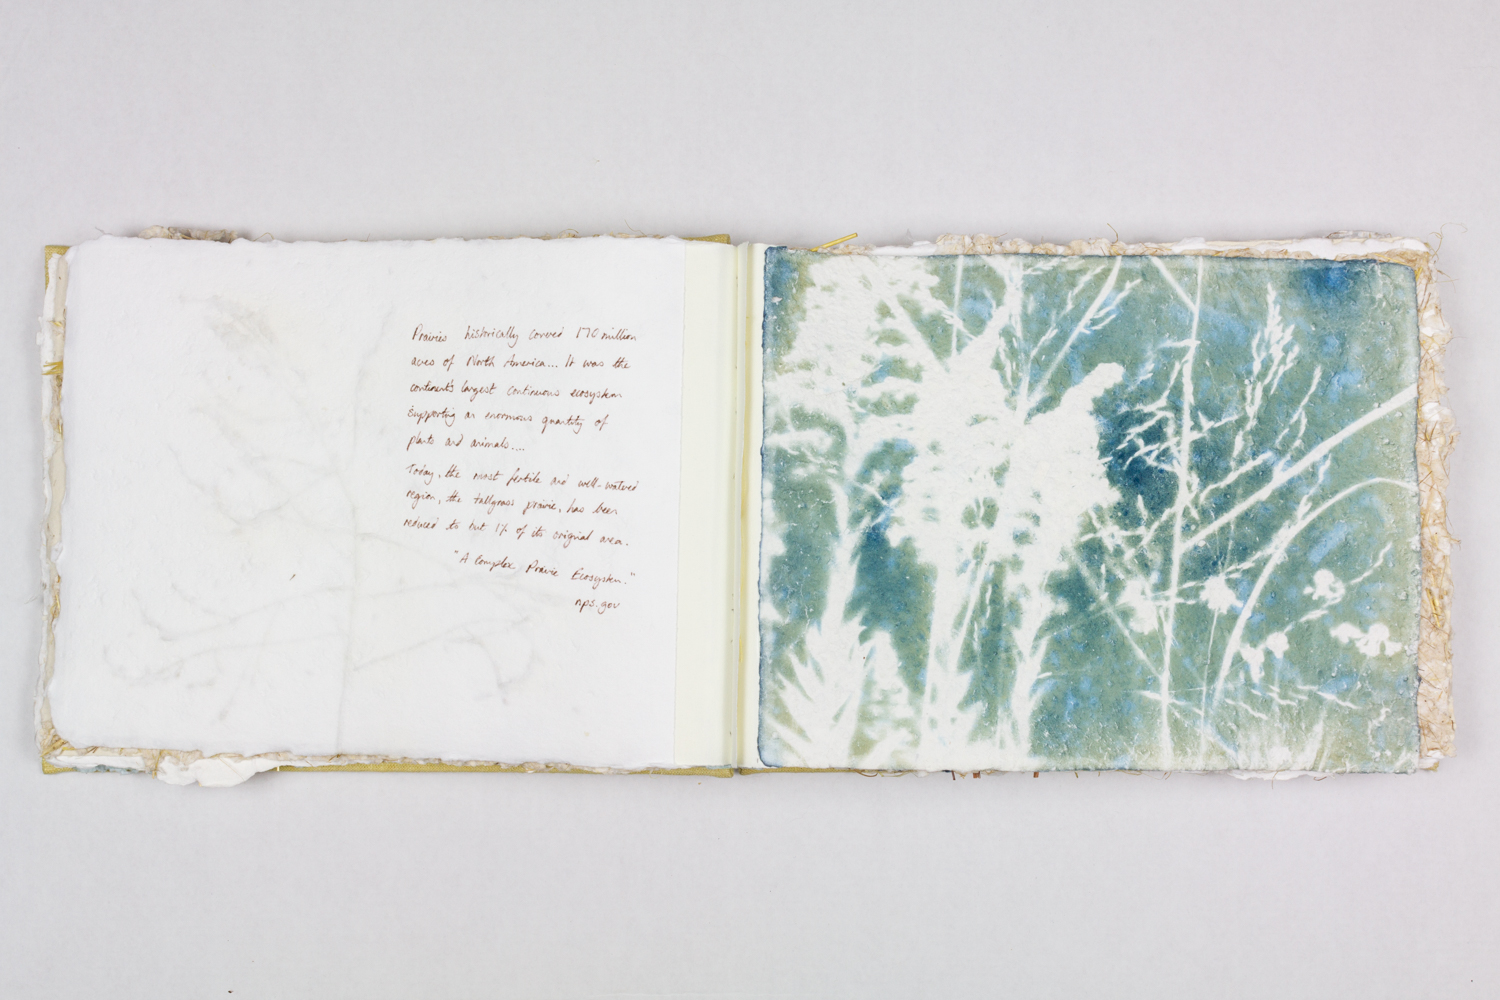 Prairies historically covered 170 million
acres of North America... It was the
continent's largest continuous ecosystem
supporting an enormous quantity of
plants and animals....
Today, the most fertile and well-watered
region, the tallgrass prairie, has been
reduced to but 1% of its original area.
"A Complex Prairie Ecosystem."
nps.gov